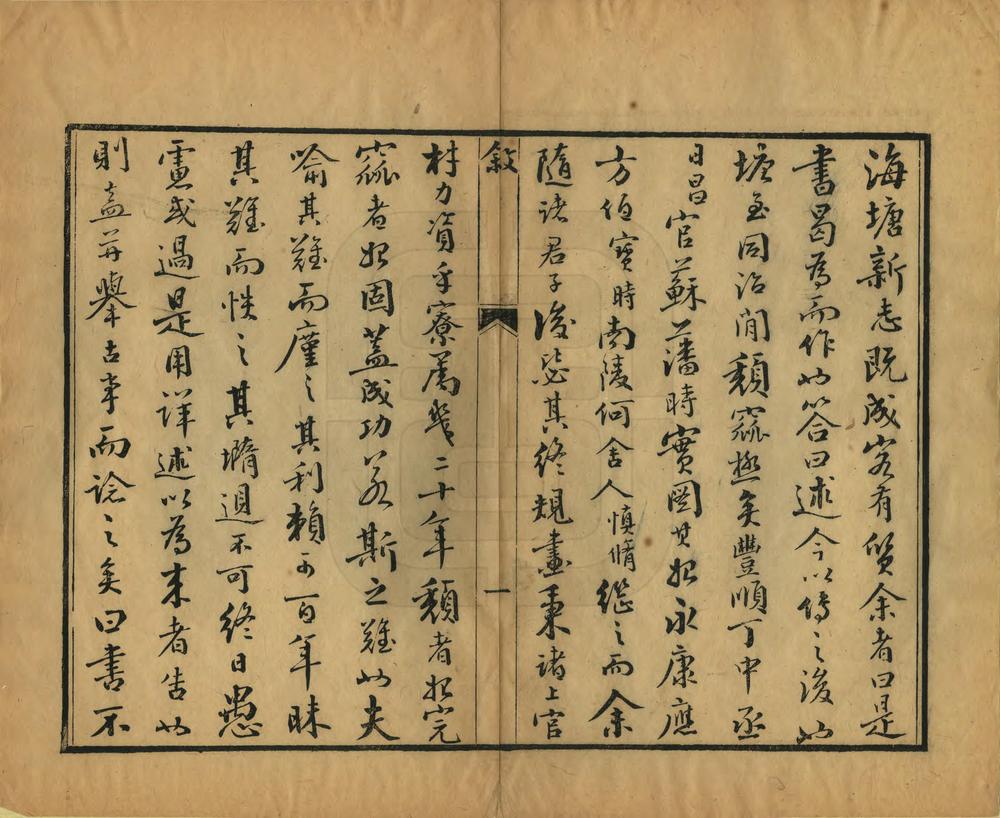 海塘新志既成客有質余者曰是
書曷為而作也答曰述今以傳之後也
塘至同治閒頹窳極矣豐順丁中丞
日昌官蘇藩時實圖其始永康應
方伯寶時南陵何舍人慎脩繼之而余
隨諸君子後毖其終規畫秉諸上官
敘
一
材力資乎寮屬幾二十年頹者始完
窳者始固蓋成功若斯之難也夫
喻其難而廑之其利賴可百年昧
其難而怢之其墮退不可終日愚
慮或過是用詳述以為來者告也
則盍並舉古事而諗之矣曰書不